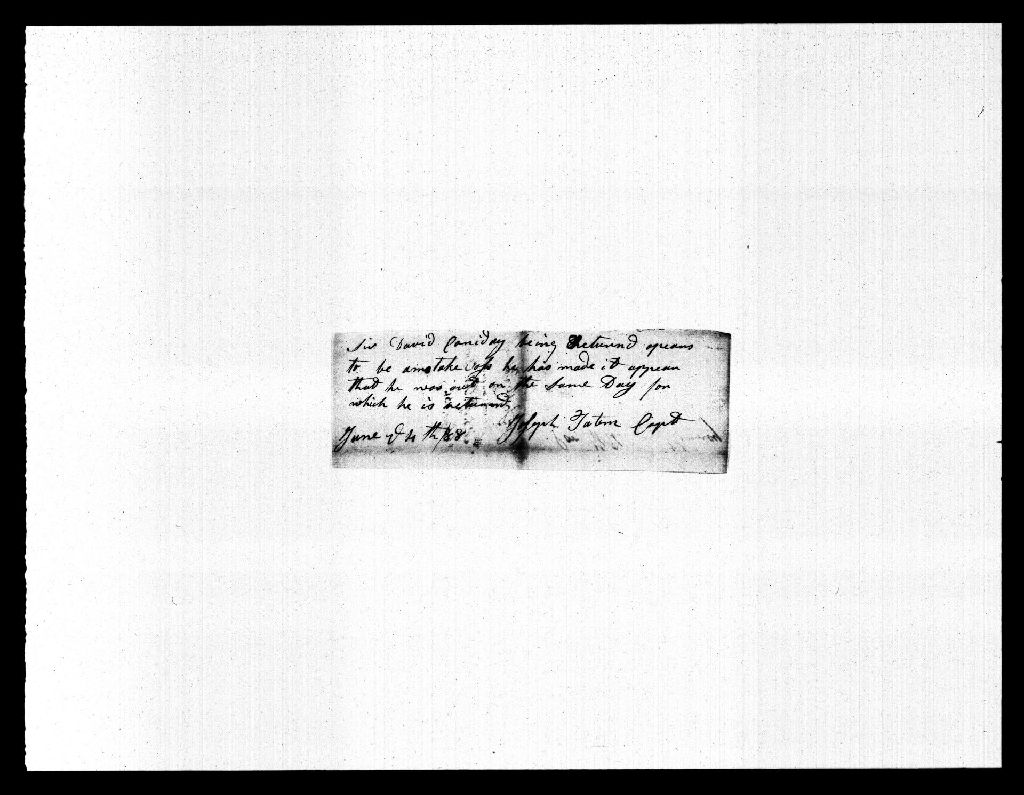 Sir David Caniday being Returnd apears
to be amstake as he has made it appear
that he was out on the same Day for
which he is returnd
Joseph Tatem Capt
June ye 4th